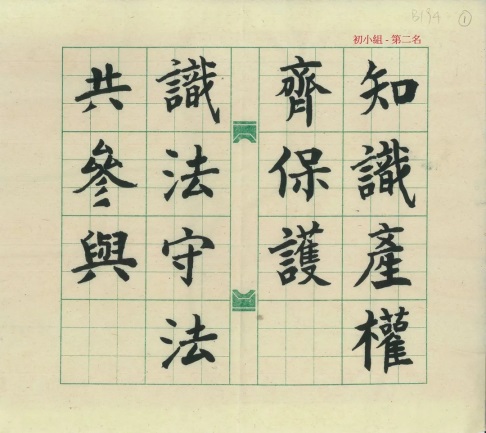 B194 ①
初小組 - 第二名
知識產權
齊保護
識法守法
共參與